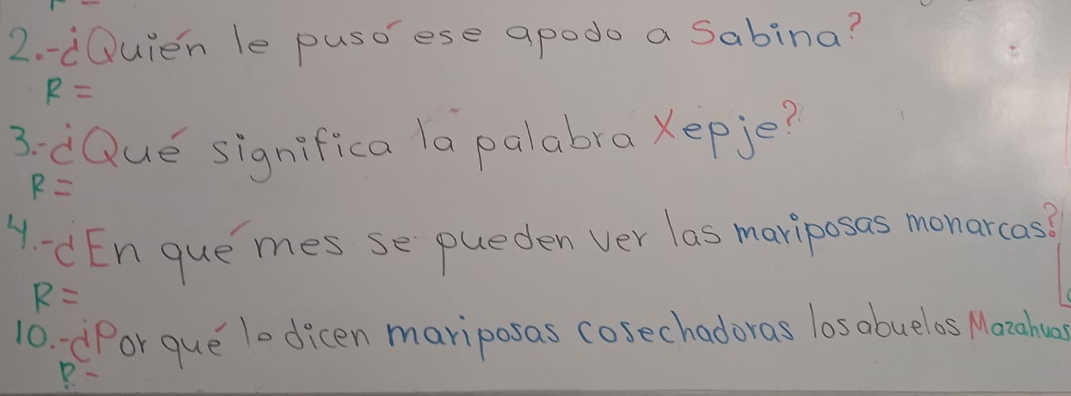 2.-¿Quién le pusó ese apodo a Sabina?
R=
3.-¿Qué significa la palabra Xepje?
R=
4.-¿En qué mes se pueden ver las mariposas monarcas?
R=
10.-¿Por qué lo dicen mariposas cosechadoras los abuelos Mazahuas
R-